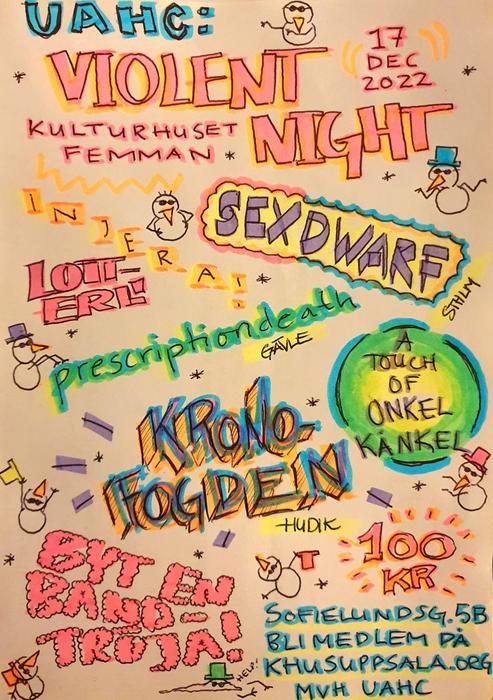 UAHC:
VIOLENT
NIGHT
17
DEC
2022
KULTURHUSET
FEMMAN
INJERA!
SEXDWARF
STHLM
LOTT-
ERI!
prescriptiondeath
GÄVLE
A
TOUCH
OF
ONKEL
KÅNKEL
KRONO-
FOGDEN
HUDIK
100
KR
BYT EN
BAND-
TRÖJA!
SOFIELUNDSG. 5B
BLI MEDLEM PÅ
KHUSUPPSALA.ORG
MVH UAHC
HELP!